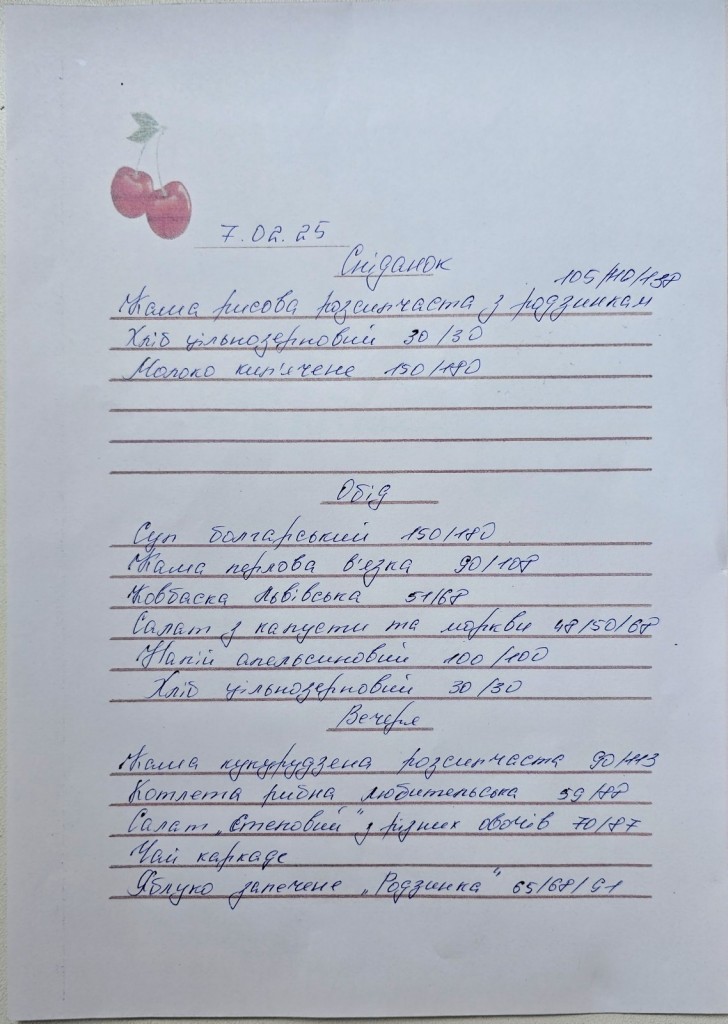 7.02.25
Сніданок
105/110/138
Каша рисова розсипчаста з родзинкам
Хліб цільнозерновий 30/30
Молоко кип'ячене 150/180
Обід
Суп болгарський 150/180
Каша перлова в'язка 90/108
Ковбаска Львівська 51/68
Салат з капусти та моркви 48/50/68
Напій апельсиновий 100/100
Хліб цільнозерновий 30/30
Вечеря
Каша кукурудзена розсипчаста 90/113
Котлета рибна любительська 59/88
Салат „Степовий" з різних овочів 70/87
Чай каркаде
Яблуко запечене „Родзинка" 65/68/91